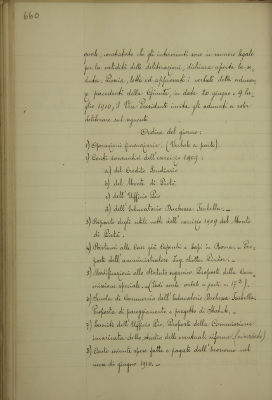 660
quale, constatato che gli intervenuti sono in numero legale
per la validità delle deliberazioni, dichiara aperta la se-
duta. Premia, letti ed approvati i verbali delle adunan-
ze precedenti della Giunta, in data 20 giugno e 9 lu-
glio 1910, il Vice Presidente invita gli adunati a
deliberare sul seguente
Ordine del giorno:
1) Operazioni finanziarie. (Verbale a parte).
2) Conti consuntivi dell'esercizio 1909:
a) del Credito Fondiario
b) del Monte di Pietà
c) dell'Ufficio Pio
d) dell'Educatorio Duchessa Isabella.
3) Riparto degli utili netti dell'esercizio 1909 del Monte
di Pietà.
4) alla Casa già in Roma. Pro-
poste dell'amministratore Ing.
5) Modificazioni allo Statuto organico. Proposte della Com-
missione speciale. (Vedi anche verbale a parte n. 17º).
6) Scuola di Commercio dell'Educatorio Duchessa Isabella.
Proposta di pareggiamento e progetto di Statuto.
7) Sussidi dell'Ufficio Pio. Proposte della Commissione
incaricata dello studio delle eventuali riforme.
8) Conto minute spese fatte e pagate dall'Economo nel
mese di giugno 1910.